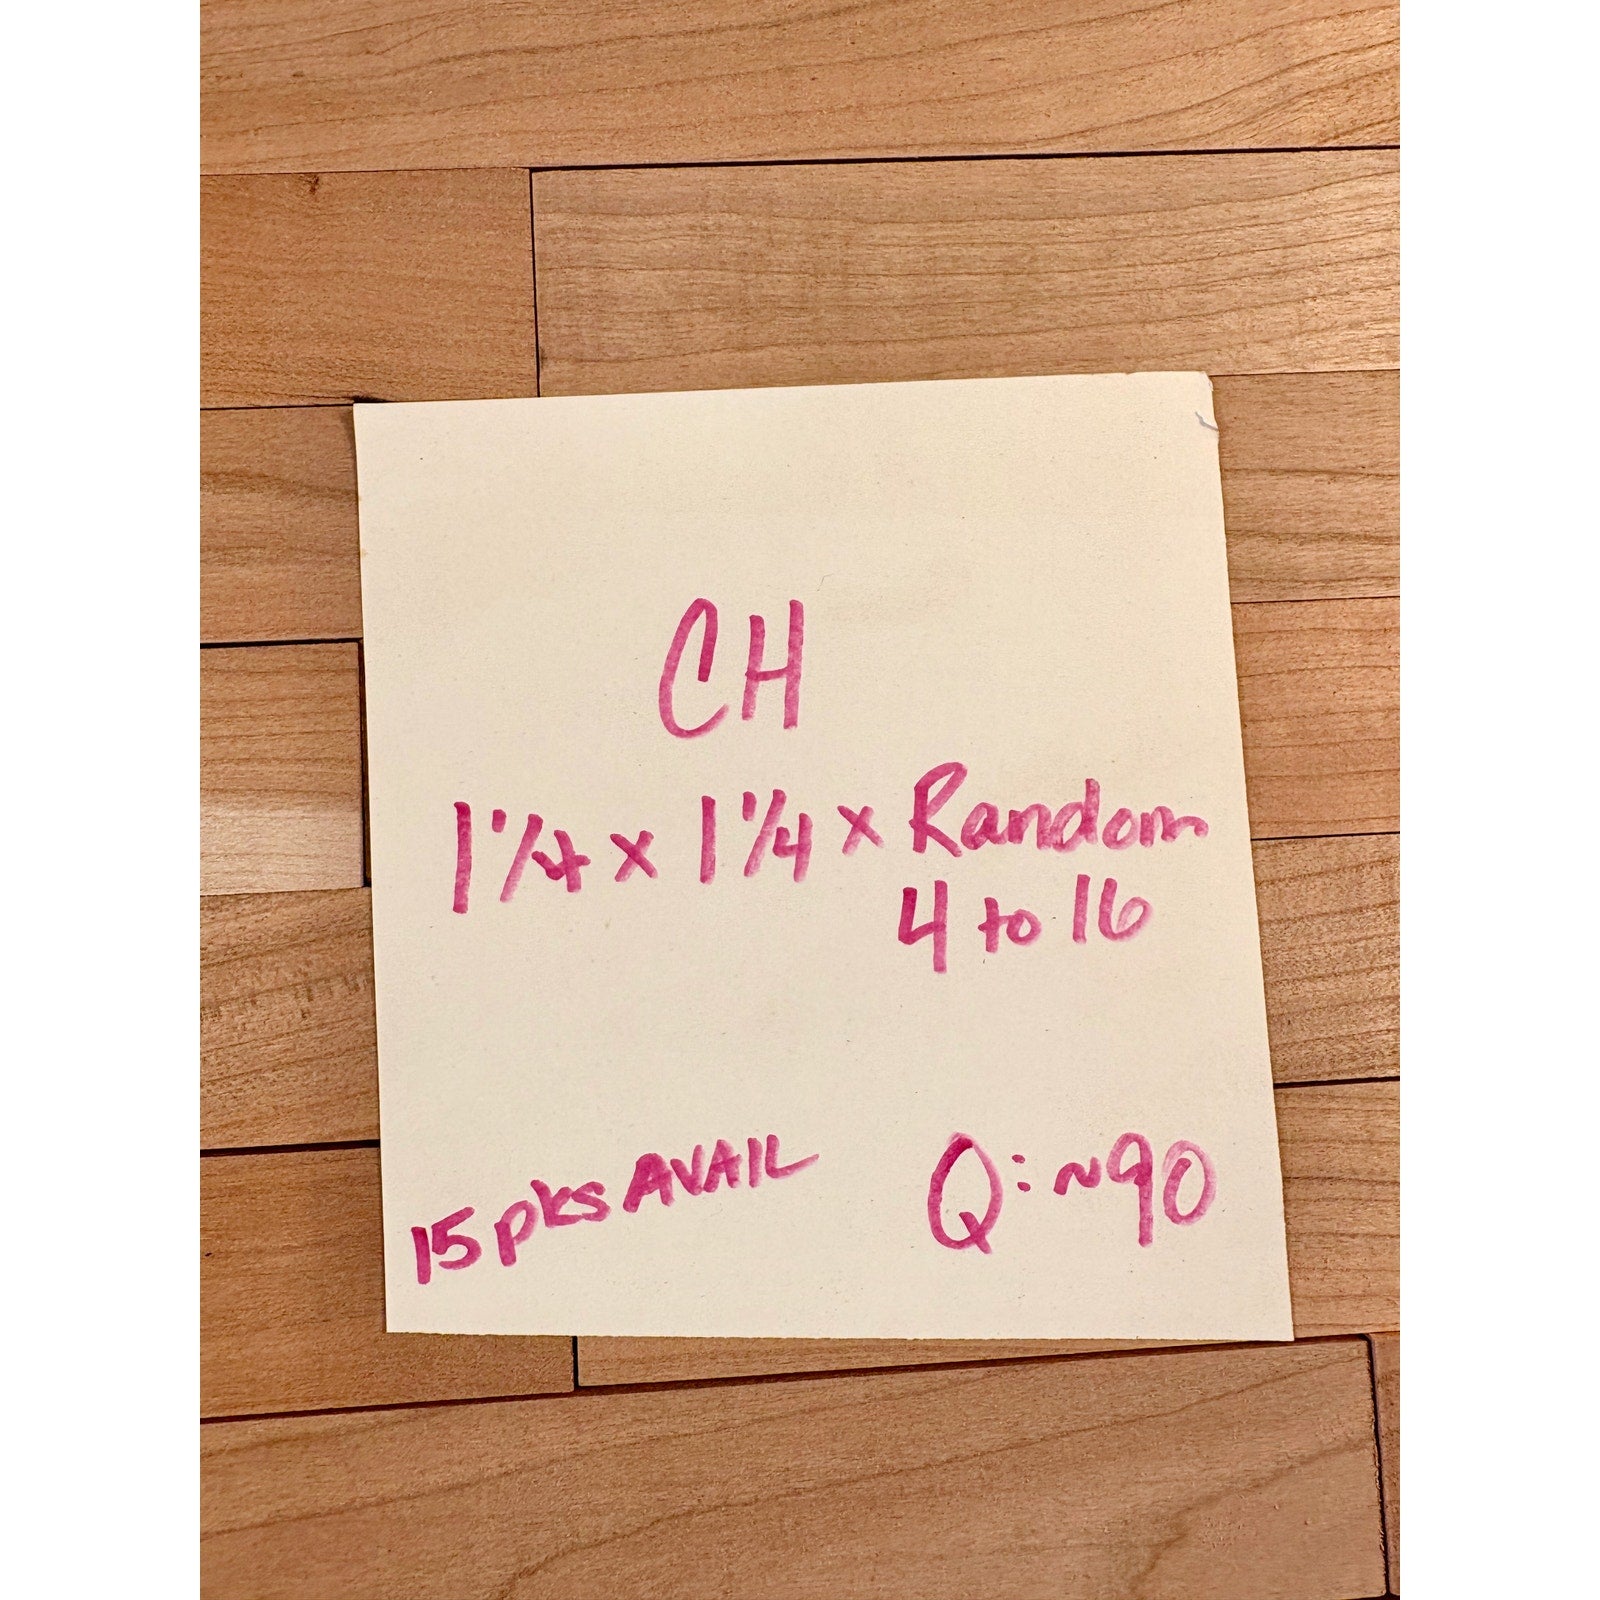 CH
1 1/4 x 1 1/4 x Random
4 to 16
15 pks AVAIL
Q: ~90